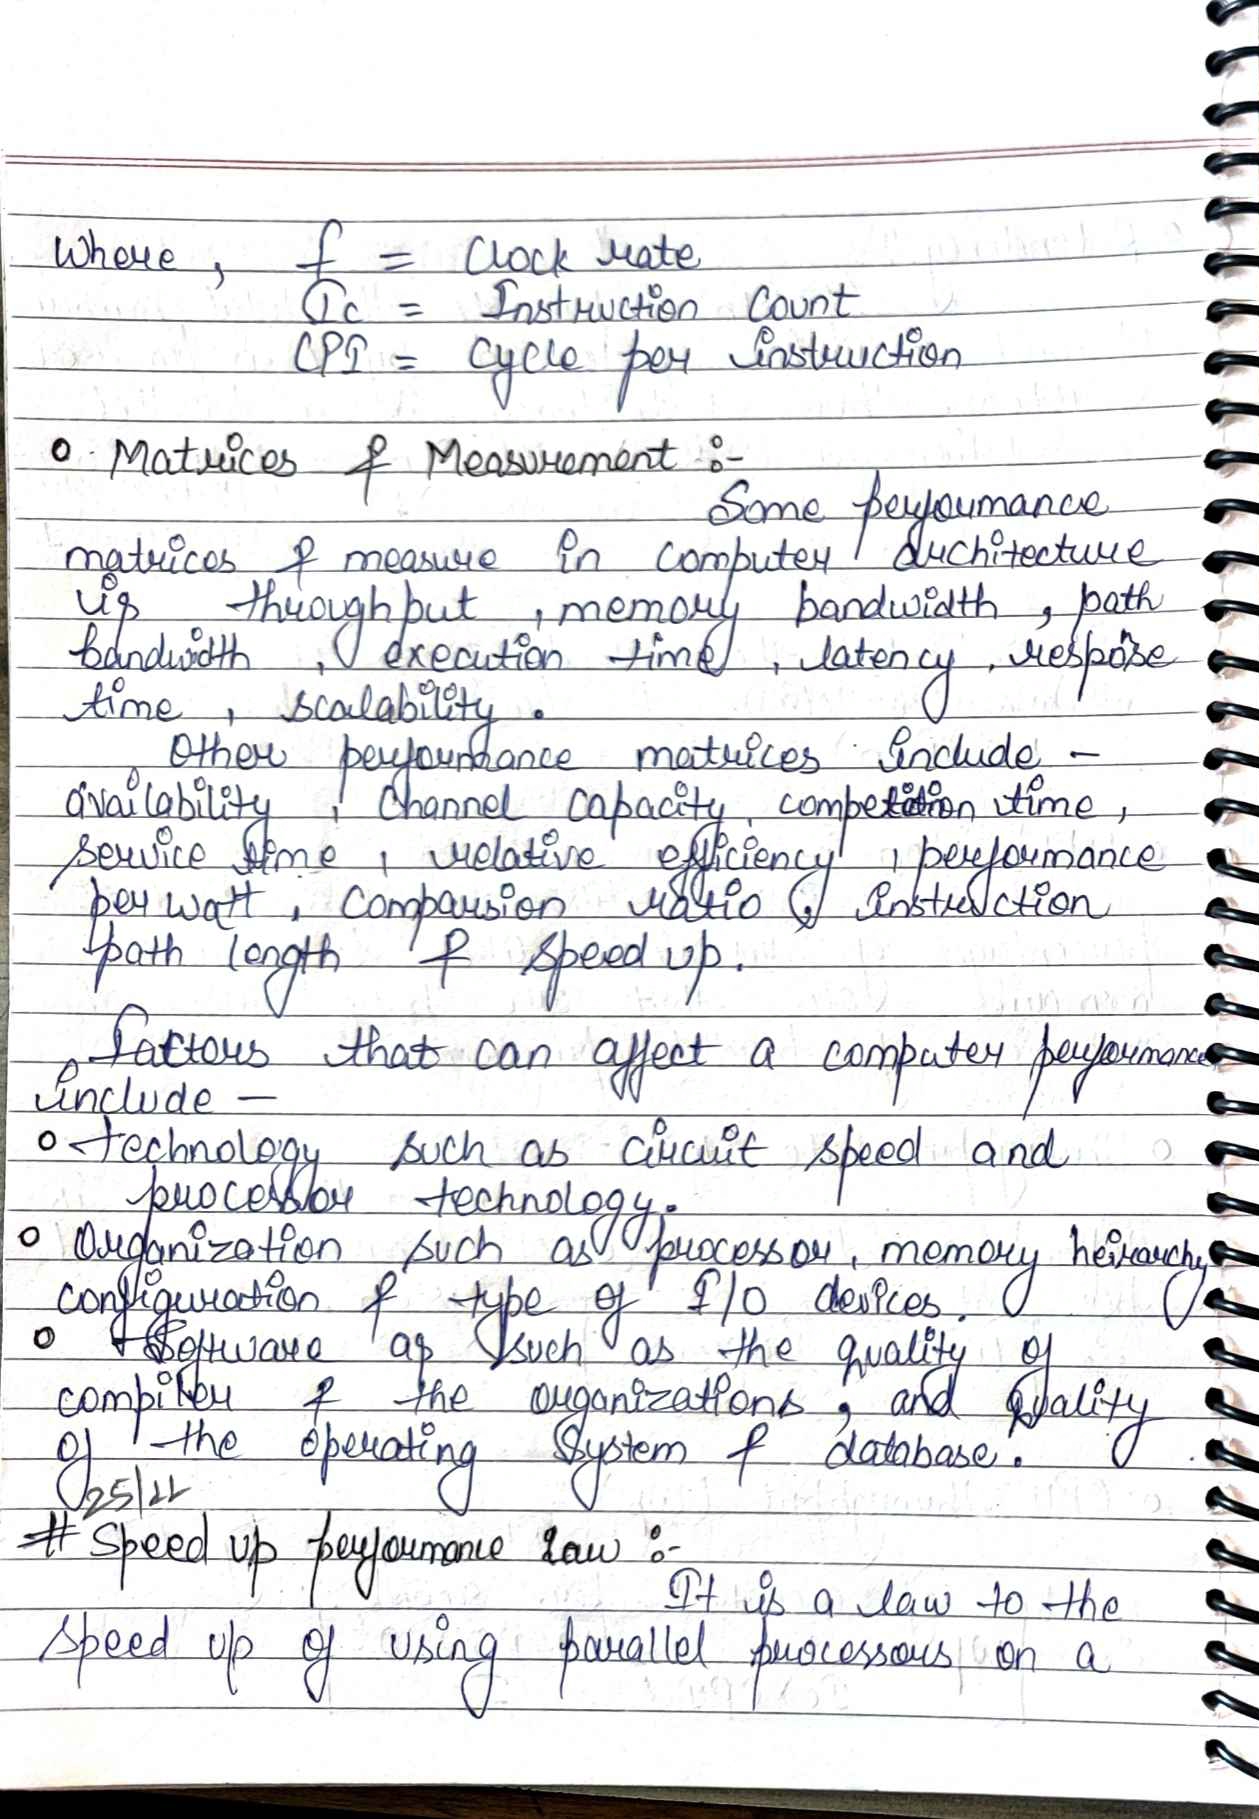 Where, f = Clock rate
Ic = Instruction Count
CPI = Cycle per instruction
o Matrices & Measurement :-
Some performance
matrices & measure in computer architecture
is throughput, memory bandwidth, path
bandwidth, execution time, latency, respose
time, scalability.
Other performance matrices include -
availability, channel capacity, time,
service time, relative efficiency, performance
per watt, Comparsion ratio, instruction
path length & speed up.
factors that can affect a computer performance
include -
o technology such as circuit speed and
processor technology.
o Organization such as processor, memory heirarchy
configuration & type of I/O devices.
o Software as such as the quality of
compiler & the organizations, and quality
of the operating system & database.
25/22
# Speed up performance Law :-
It is a law to the
speed up of using parallel processors on a